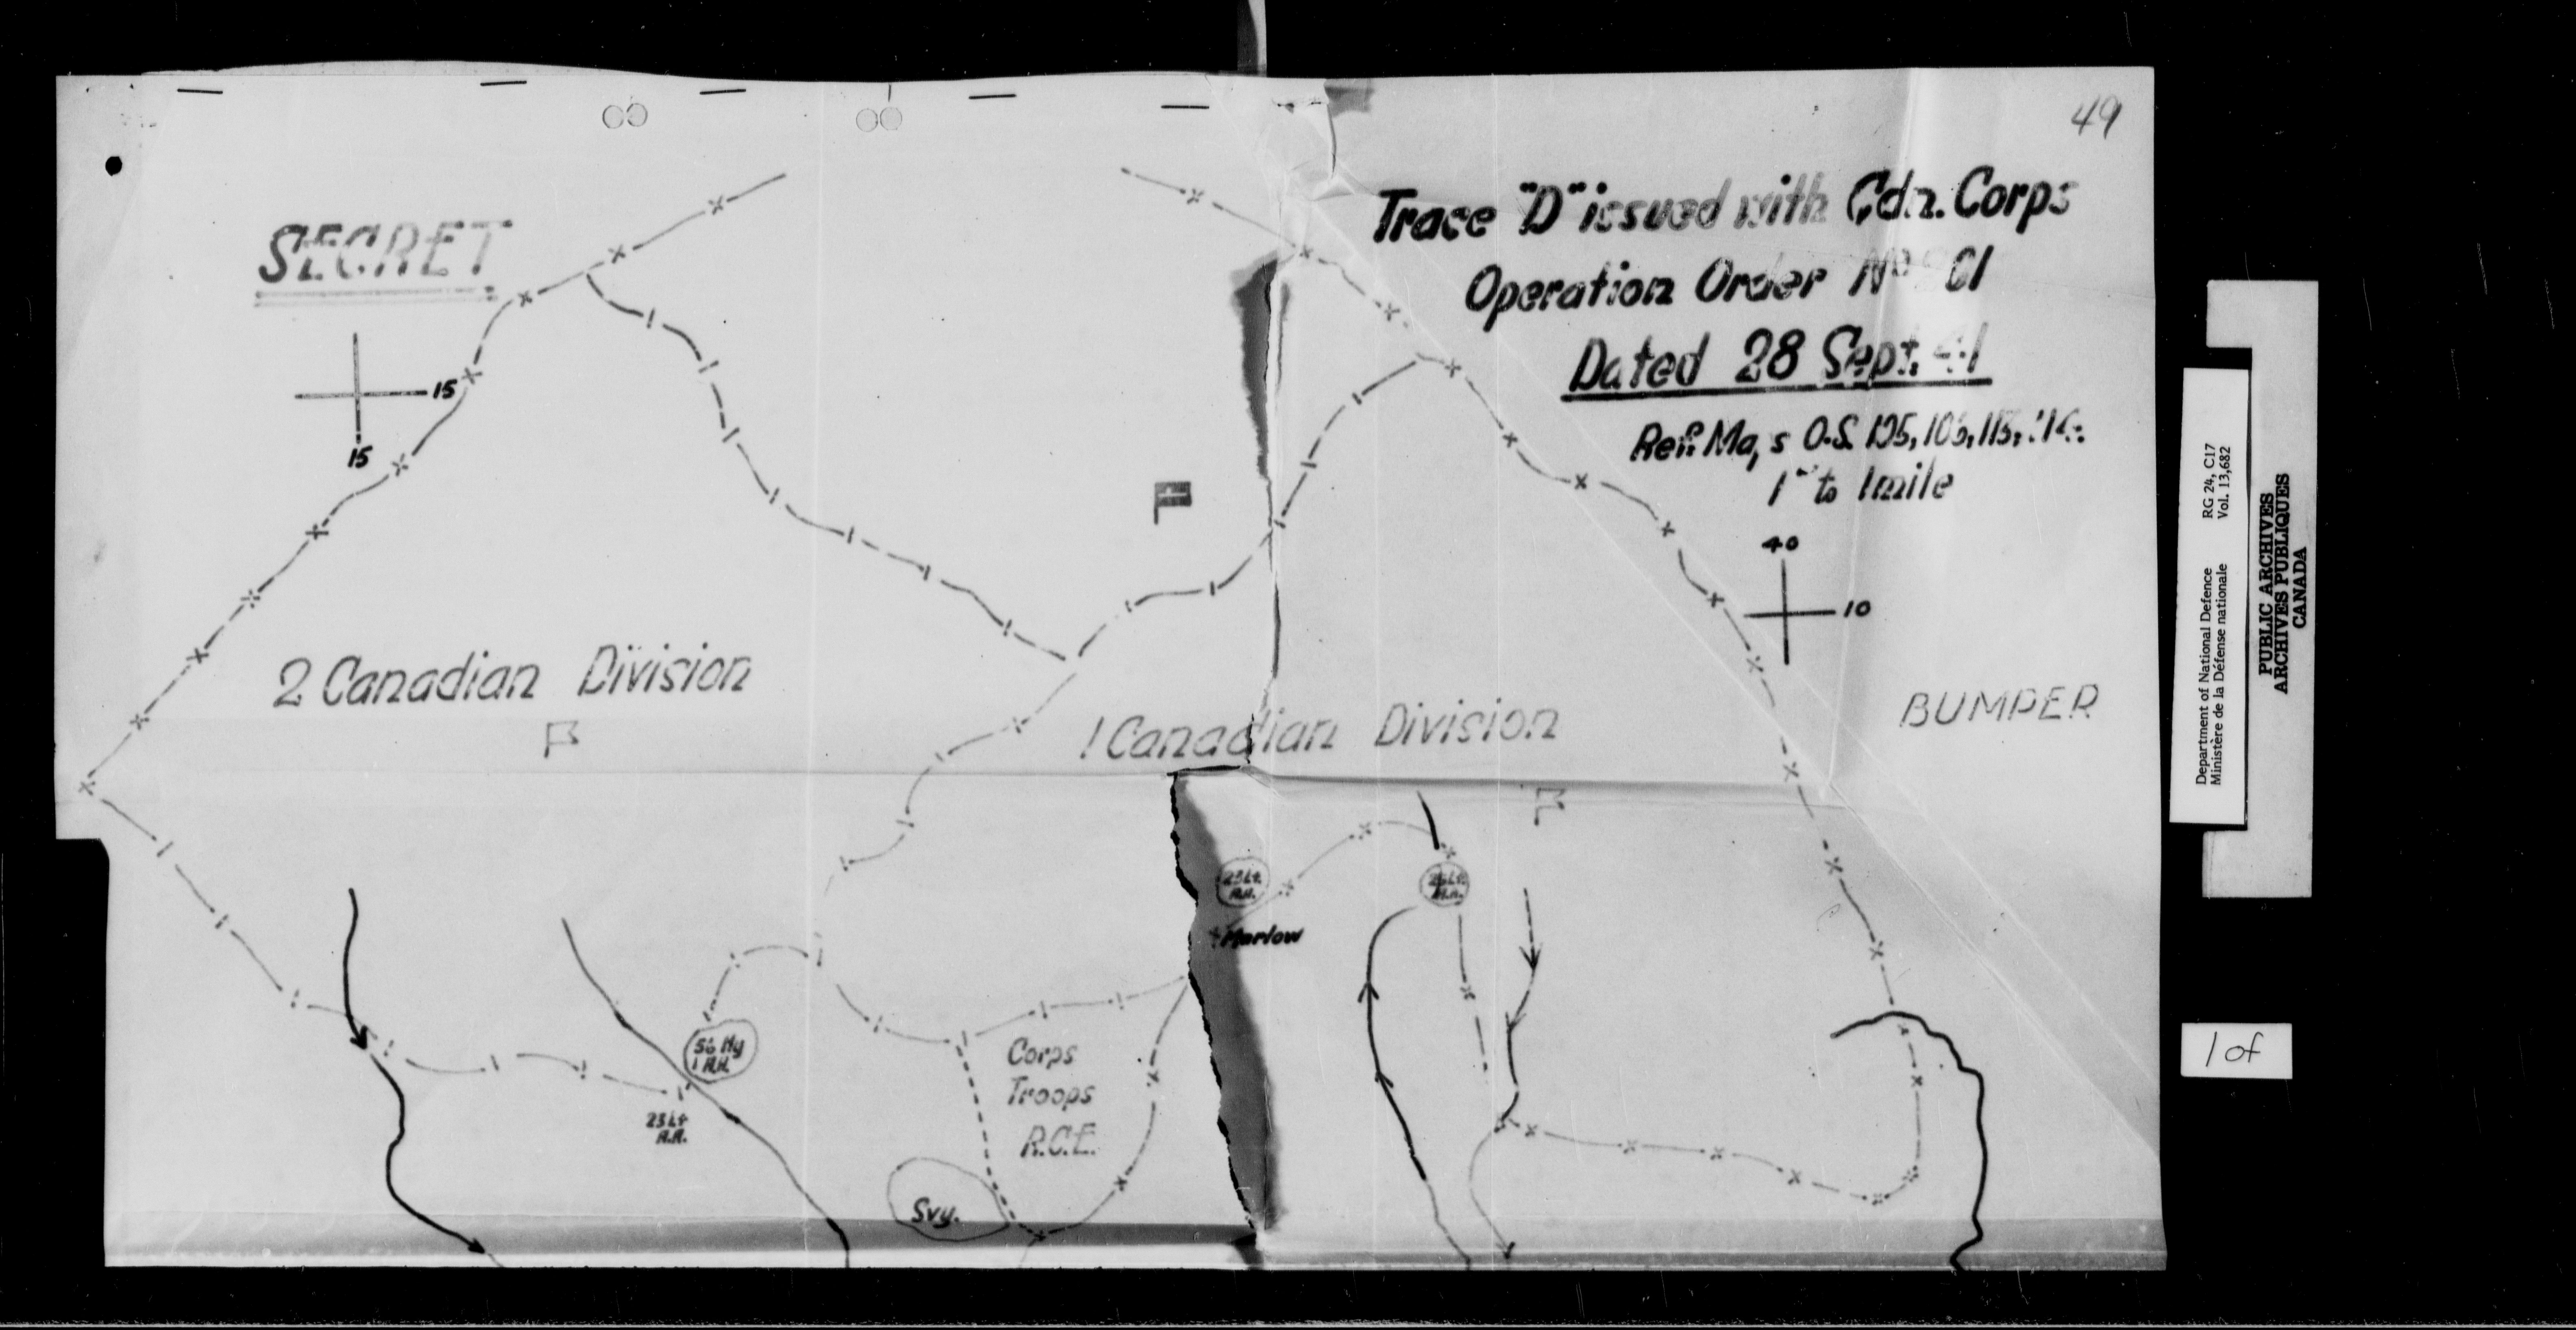 49
SECRET
Trace "D" issued with Cdn. Corps
Operation Order No 61
Dated 28 Sept. 41
Ref. Maps O.S. 105, 106, 113, 114.
1" to 1 mile
15
15
40
10
2 Canadian Division
1 Canadian Division
BUMPER
23 Lt.
A.A.
Marlow
Lt.
A.A.
56 Hy
A.A.
23 Lt
A.A.
Corps
Troops
R.C.E.
Svy.
Department of National Defence RG 24, C17
Ministère de la Défense nationale Vol. 13,682
PUBLIC ARCHIVES
ARCHIVES PUBLIQUES
CANADA
1 of